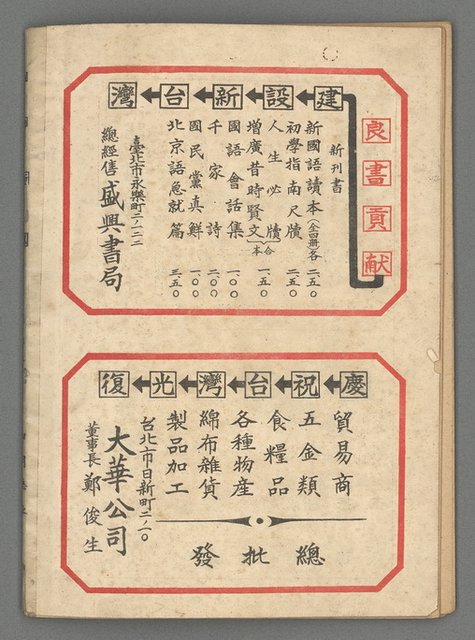 良書貢献
建設新台灣
新刊書
新國語讀本（全四冊）各 二.五〇
初學指南尺牘 二.五〇
人生必讀
增廣昔時賢文 合本 一.五〇
國語會話集 一.〇〇
千家詩 二.〇〇
國民黨真鮮 一.〇〇
北京語急就篇 三.五〇
臺北市永樂町二ノ一二二
總經售 盛興書局
慶祝台灣光復
貿易商
五金類
食糧品
各種物產
綿布雜貨
製品加工
總批發
台北市日新町二ノ一〇
大華公司
董事長 鄭俊生